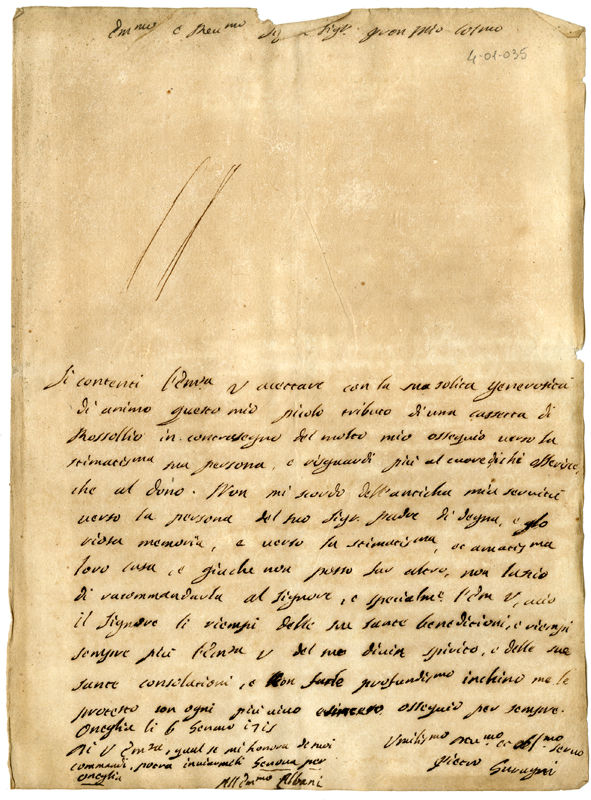 Em.mo e Reu.mo Sig.r Sig.r Pron Mio Colmo
4-01-035
Si contenti l'Em.za V accettare con la sua solita generosità
di animo questo mio picolo tributo di una cassetta di
Rossollio in contrasegno del molto mio osseguio verso la
stimatis.ma sua persona, e risguardi più al cuore di chi
che al dono. Non mi scordo dell'anticha mia servitù
verso la persona del suo Sig.r padre di degna, e glo
riosa memoria, e verso la stimatis.ma, et amatis.ma
loro casa, e giache non posso far altro, non lascio
di racomandarla al Signore, e specialm.e l'Em V, acciò
il Signore li riempi delle sue sante benedicioni, e riempi
sempre più l'Em.za V del suo divin spirito, e delle sue
sante consolacioni, e con farle profundis.mo inchino me le
protesto con ogni più vivo e sincero osseguio per sempre.
Oneglia li 6 Genaro 1715
Di V Em.za, qual se mi honora de suoi
commandi, potrà inviarmeli Genova per
Oneglia
All Em.mo Albani
Umilis.mo Deu.mo et obl.mo seruo
Pietro